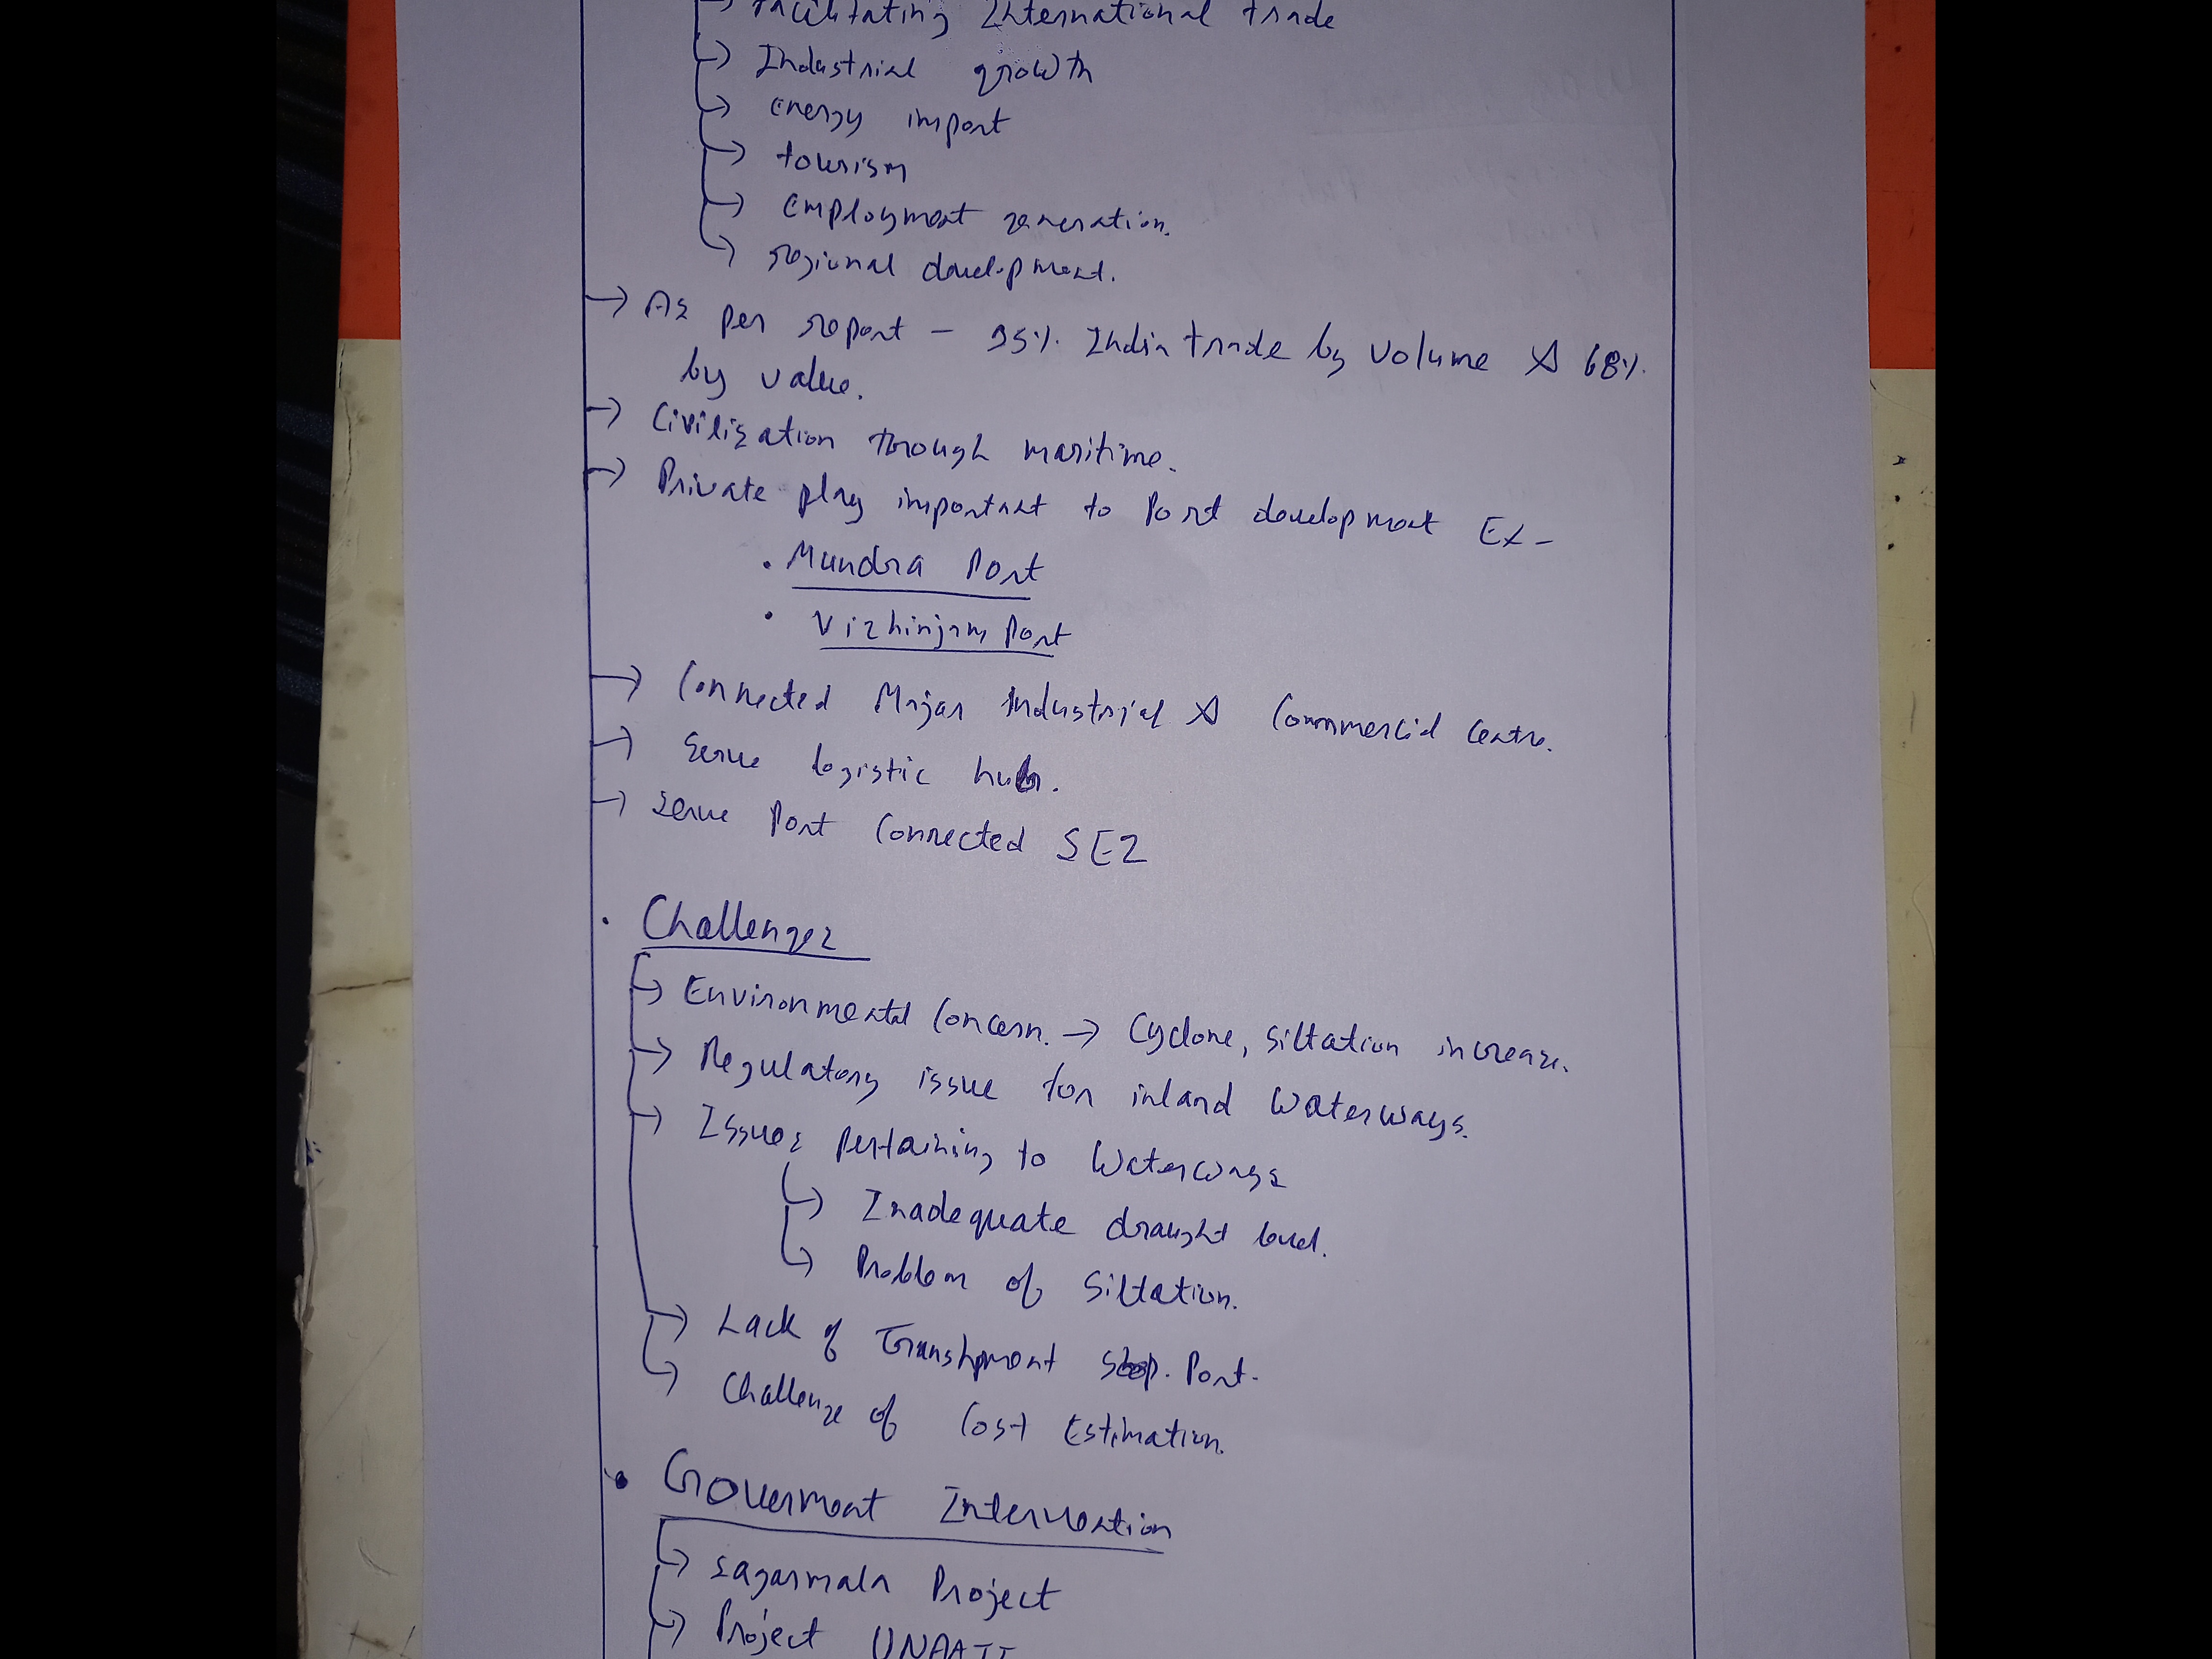 → Facilitating International trade
→ Industrial growth
→ energy import
→ tourism
→ employment generation.
→ regional development.
→ As per report - 95% India trade by volume & 68%
by value.
→ Civilization through maritime.
→ Private play important to Port development Ex -
• Mundra Port
• Vizhinjam Port
→ Connected Major Industrial & Commercial Centre.
→ Serve logistic hub.
→ serve Port Connected SEZ
• Challenges
→ Environmental Concern. → Cyclone, siltation increase.
→ Regulatory issue for inland waterways.
→ Issues pertaining to Waterways
→ Inadequate draught level.
→ Problem of Siltation.
→ Lack of Transhpment Port.
→ Challenge of Cost Estimation.
• Goverment Intervention
→ Sagarmala Project
→ Project UNAATI